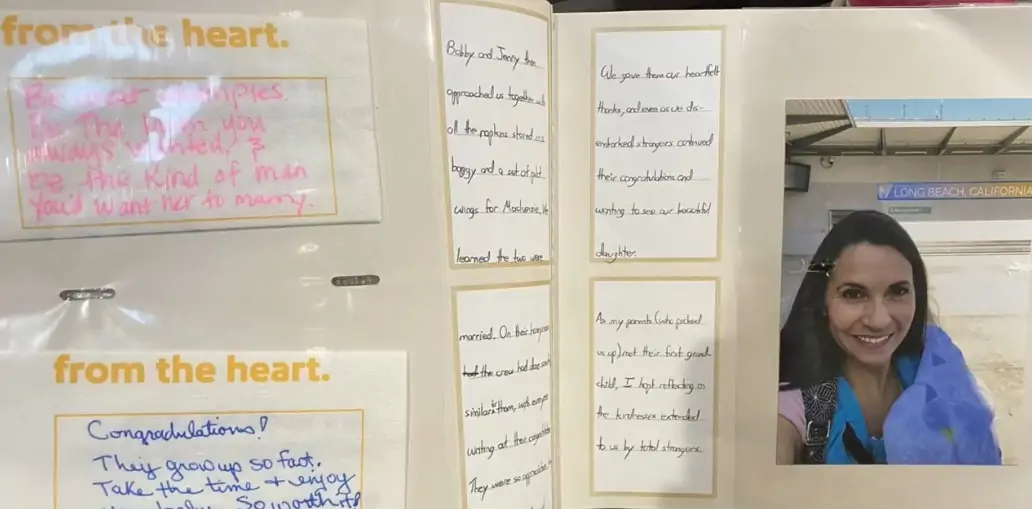 from the heart.
Be
The
you
always wanted, &
be the kind of man
you'd want her to marry.
from the heart.
Congradulations!
They grow up so fast.
Take the time & enjoy
So worth it!
Bobby and Jenny then
approached us together with
all the napkins stored in a
baggy and a set of pilot
wings for Mackenzie. We
learned the two were
married. On their honeymoon
the crew had done something
similar for them, with everyone
writing out their congratulations
They were so appreciative
We gave them our heartfelt
thanks, and even as we dis-
embarked strangers continued
their congratulations and
wanting to see our beautiful
daughter.
As my parents (who picked
us up) met their first grand
child, I kept reflecting on
the kindnesses extended
to us by total strangers.
LONG BEACH, CALIFORNIA